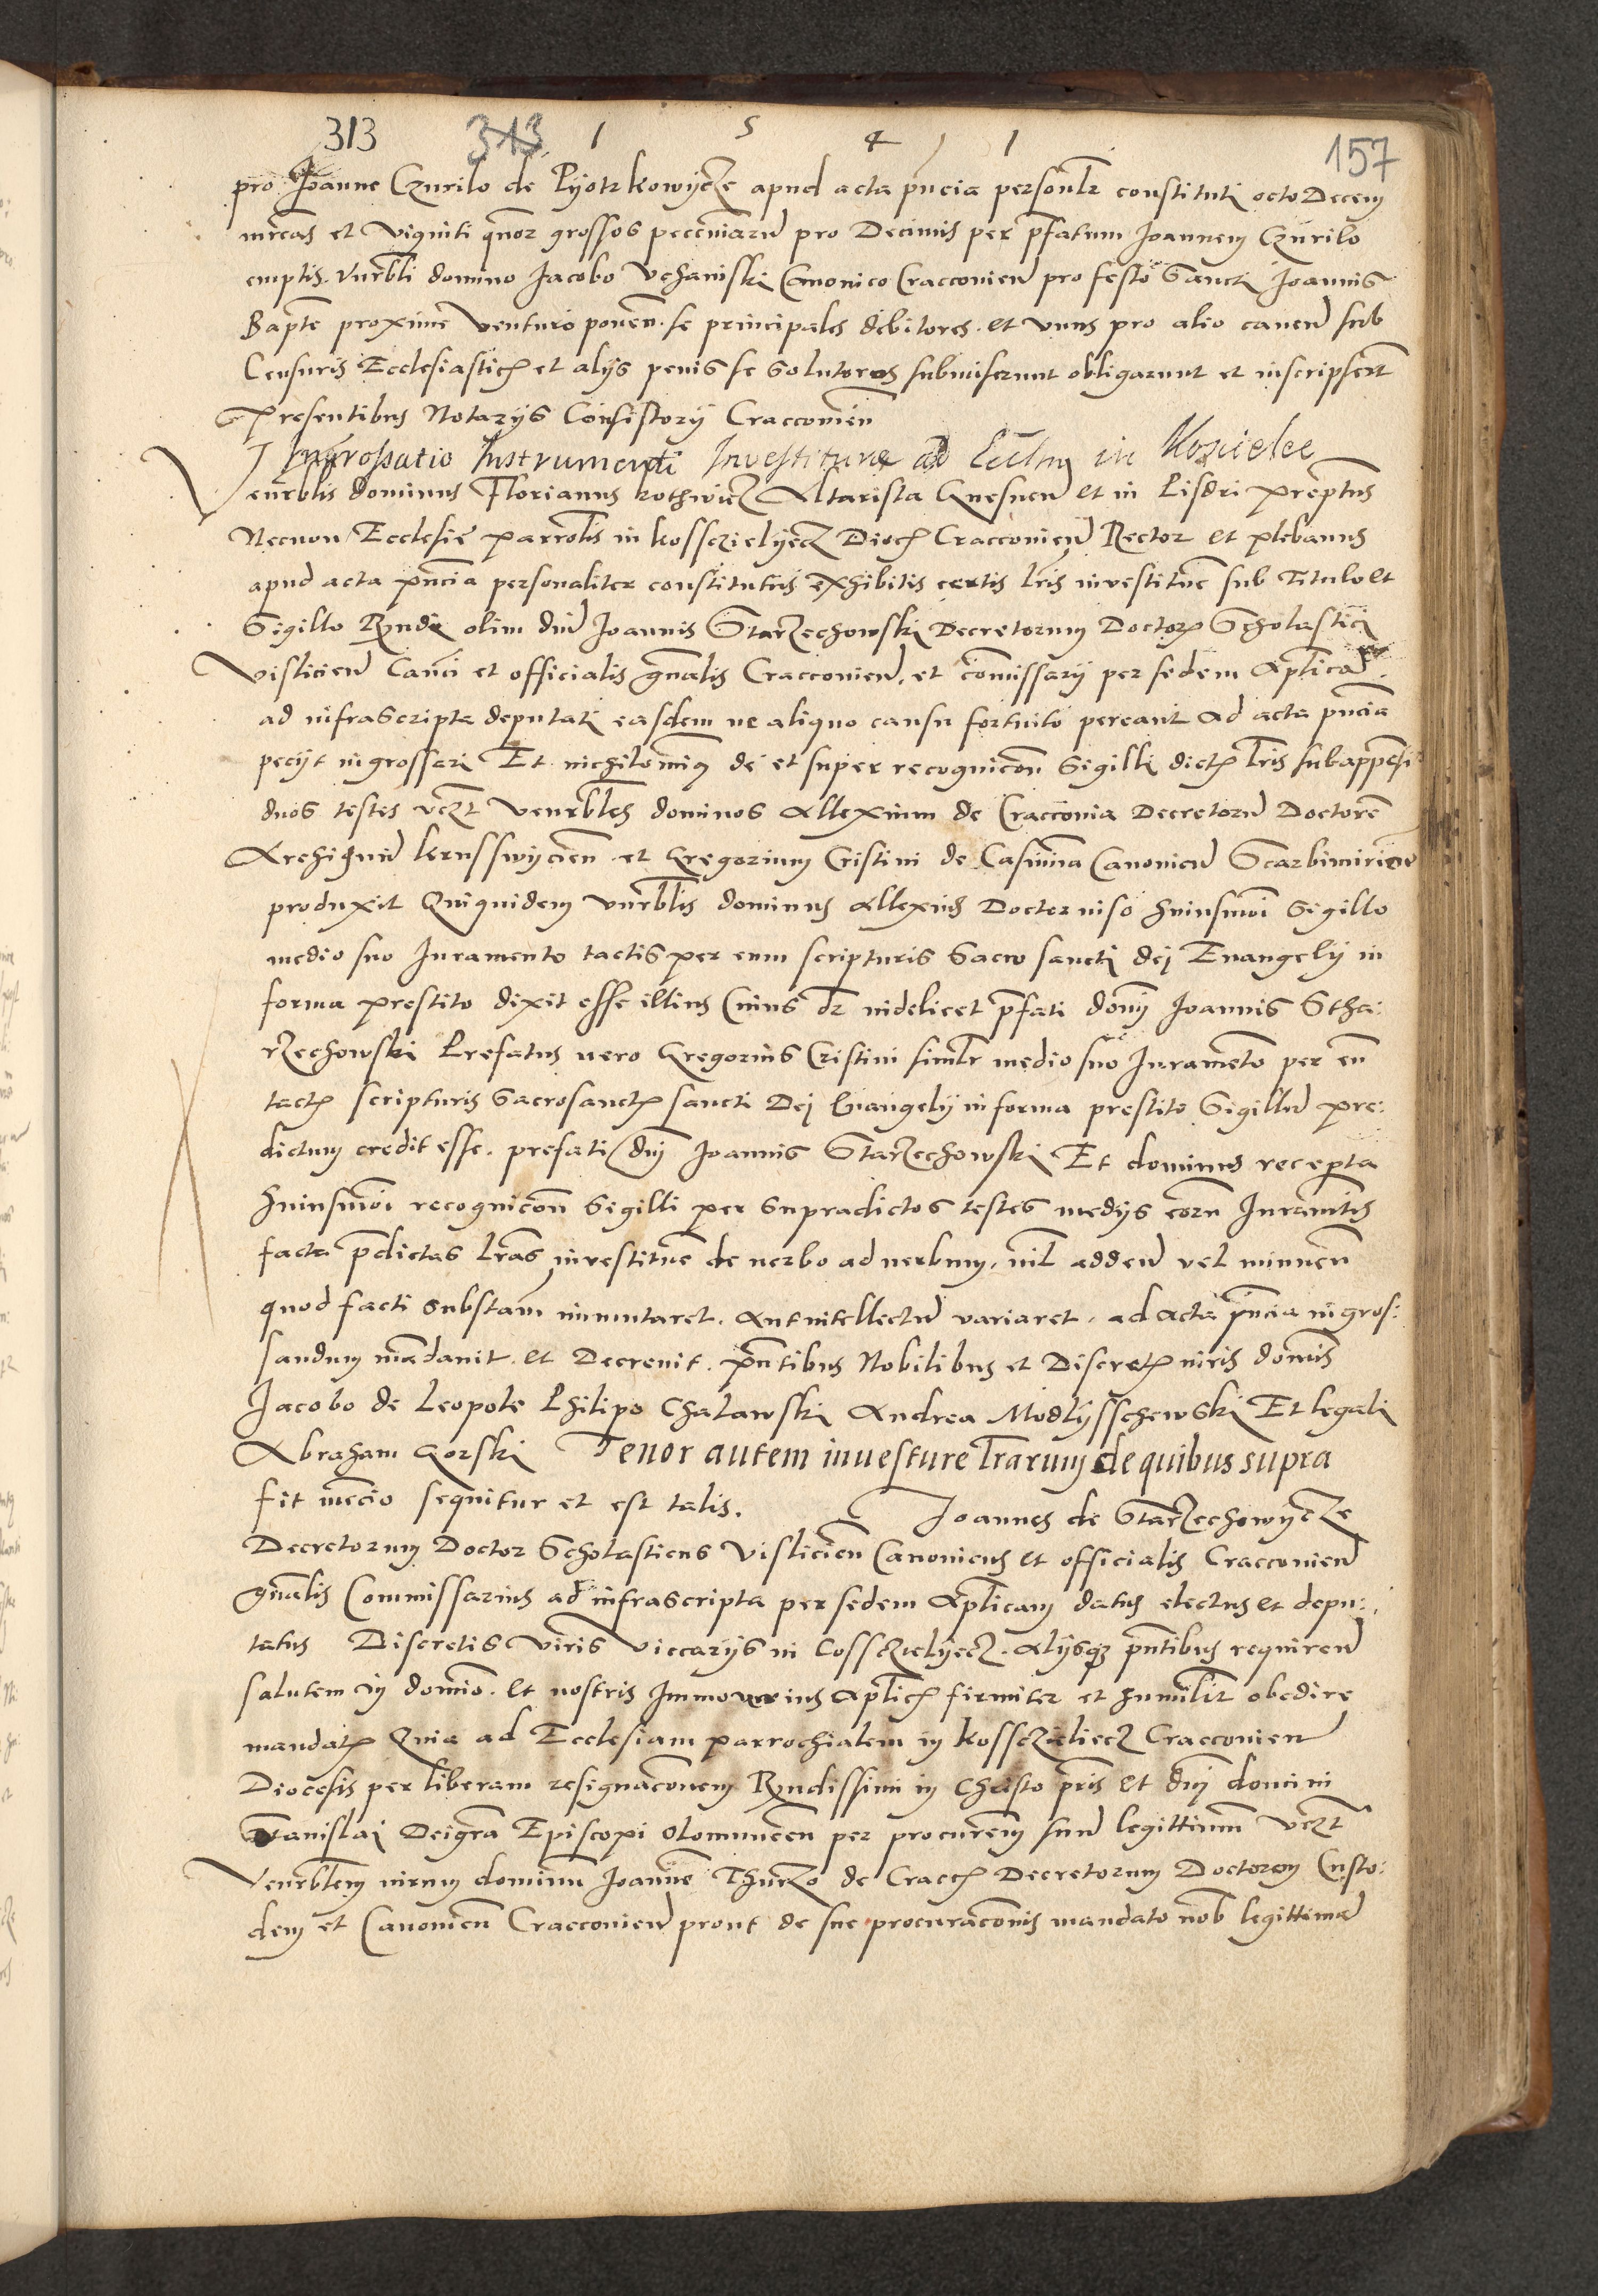 313 343 1 5 4 1 157
pro Joanne Czurilo de Pyotrkowycze apud acta pn̄cia personlr constituti octo Decem
mrcas et viginti qnor grossos pecūiarū pro Decimis per p̄fatum Joannem Czurilo
emptis. vnrbli domino Jacobo Uchaniski Canonico Cracovien̄ pro festo Sancti Joannis
Bapte proxime venturo ponen̄. se principales debitores. et vnus pro alio cauen̄ sub
Censuris Ecclesiasticꝭ et alijs penis se solutores submiserunt obligarunt et inscripsert
Presentibus Notarijs Consistorij Cracovien̄
Ingrossatio Instrumenti Investiturae ad Eccl̄m in Koscielec
Venrblis dominus Florianus Kothwicz Altarista Gnesnen̄ et in Pisdri Prep̄tus
Necnon Ecclesie parrolis in Kosszielyecz Diocꝭ Cracovien̄ Rector et plebanus
apud acta pn̄cia personaliter constitutus exhibitis certis lr̄is investitur̄e sub Titulo et
Sigillo Rn̄di olim dnī Joannis Starzechowski Decretorum Doctorꝭ Scholastici
Visliciēn Canci et officialis gn̄alis Cracovien̄. et comissarij per sedem Aplicā
ad infrascripta deputati easdem ne aliquo causu fortuito pereant ad acta pn̄cia
pecijt ingrossari Et nichilominꝰ de et super recognicōn Sigilli dictꝭ lr̄is subappēsi
duos testes vezt Venrbles dominos Allexium de Cracovia Decretorū Doctorē
Archidn̄ū Krusswycien̄. et Gregorium Cristini de Casimira Canonicū Scarbimirien̄
produxit Quiquidem vnrblis dominus Allexius Doctor viso huiusmōi Sigillo
medio suo Juramento tactis per eum scripturis Sacro sancti dej Euangelij in
forma prestito dixit esse illius Cuius dr̄ videlicet p̄fati domj Joannis Stha:
rzechowski Prefatus uero Gregorius Cristini similr medio suo Juramēto per eū
tactꝭ scripturis Sacrosanctꝭ sancti Dej Euangelij in forma prestito Sigillū pre:
dictum credit esse. prefati dnj Joannis Starzechowski Et dominus recepta
huiusmōi recognicōn Sigilli per supradictos testes medijs eorū Juramtis
facta p̄dictas lr̄as investiture de uerbo ad uerbum. nil̄ adden̄ vel minuen̄
quod facti substām immutaret. Aut intellectū variaret. ad acta pn̄cia ingros:
sandum mādavit. et Decrevit. pn̄tibus Nobilibus et Discretꝭ viris domīs
Jacobo de Leopole Philipo Chalawski Andrea Modlysschewski Et legali
Abraham Gorski Tenor autem inuesture lr̄arum de quibus supra
fit mēcio sequitur et est talis. Joannes de Starzechowycze
Decretorum Doctor Scholasticus Visliciēn Canonicus et officialis Cracovien̄
gn̄alis Commissarius ad infrascripta per sedem Aplicam datus electus et depu:
tatus Discretis viris viccarijs in Cossczielyecz. Alijsqꝫ pn̄tibus requiren̄
salutem in domīo. et nostris Immo verius Aplicꝭ firmiter et humilit̄ obedire
mandatꝭ Quia ad Ecclesiam parrochialem in Kossczieliecz Cracovien̄
Diocesis per liberam resignacōnem Rn̄dissimi in Christo pr̄is et dnj domini
Stanislai Dei grā Episcopi Olomucēn per procurem suū legittimum vezt
Venrblem virum dominū Joannē Thurzo de Cracꝭ Decretorum Doctorem Custo:
dem et Canonicū Cracovien̄ prout de sue procuracōnis mandato nob̄ legittima